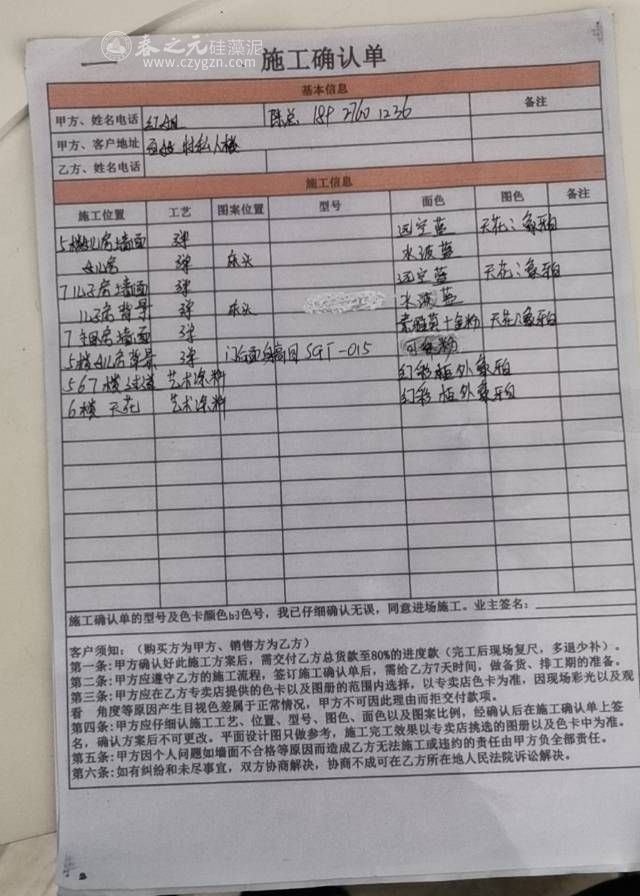 春之元硅藻泥
www.czygzn.com
一 施工确认单
基本信息
甲方、姓名电话 红姐 陈总 189 2760 1236 备注
甲方、客户地址 村私人楼
乙方、姓名电话
施工信息
施工位置 工艺 图案位置 型号 面色 图色 备注
5楼女儿房墙面 远空蓝 天花:象牙白
女儿房 床头 水波蓝
7儿子房墙面 远空蓝 天花:象牙白
儿子房背景 床头 水波蓝
7 墙面 天花 象牙白
5楼女儿房背景 SGT-015
5 6 7楼过道 艺术涂料 幻彩 外象牙白
6楼 天花 艺术涂料 幻彩 外象牙白
施工确认单的型号及色卡颜色的色号，我已仔细确认无误，同意进场施工。业主签名：
客户须知：（购买方为甲方、销售方为乙方）
第一条：甲方确认好此施工方案后，需交付乙方总货款至80%的进度款（完工后现场复尺，多退少补）。
第二条：甲方应遵守乙方的施工流程，签订施工确认单后，需给乙方7天时间，做备货、排工期的准备。
第三条：甲方应在乙方专卖店提供的色卡以及图册的范围内选择，以专卖店色卡为准，因现场彩光以及观
看 角度等原因产生目视色差属于正常情况，甲方不可因此理由而拒交付款项。
第四条：甲方应仔细认施工工艺、位置、型号、图色、面色以及图案比例，经确认后在施工确认单上签
名，确认方案后不可更改。平面设计图只做参考，施工完工效果以专卖店挑选的图册以及色卡中为准。
第五条：甲方因个人问题如墙面不合格等原因而造成乙方无法施工或违约的责任由甲方负全部责任。
第六条：如有纠纷和未尽事宜，双方协商解决，协商不成可在乙方所在地人民法院诉讼解决。